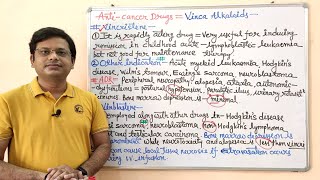 Anti-cancer Drugs = Vinca Alkaloids
# Vincristine
① It is rapidly acting drug - Very useful for inducing
remission in childhood acute - lymphoblastic leukaemia
but not good for maintenance therapy
② Other Indication - Acute myeloid leukaemia, Hodgkin's
disease, Wilm's tumour, Ewing's sarcoma, neuroblastoma
# ADR - Peripheral neuropathy, alopecia, ataxia, autonomic
dysfunctions = postural hypotension, paralytic ileus, urinary
seizures. Bone marrow depression is minimal
Vinblastine
employed along with other drugs In - Hodgkin's disease
sarcoma, neuroblastoma, non Hodgkin's lymphoma
and testicular carcinoma. Bone marrow depression is
prominent while neurotoxicity and alopecia is less than
can cause local tissue necrosis if extravasation occurs
during i.v. infusion